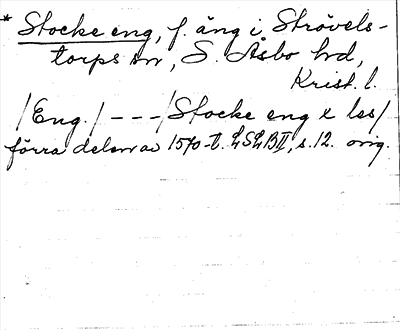 * Stocke eng, f. äng i Strövels-
torps sn, S. Åsbo hd,
Krist. l.
/Eng./ - - - /Stocke eng x las/
förra delen av 1570-t. LSLBII, s. 12. orig.